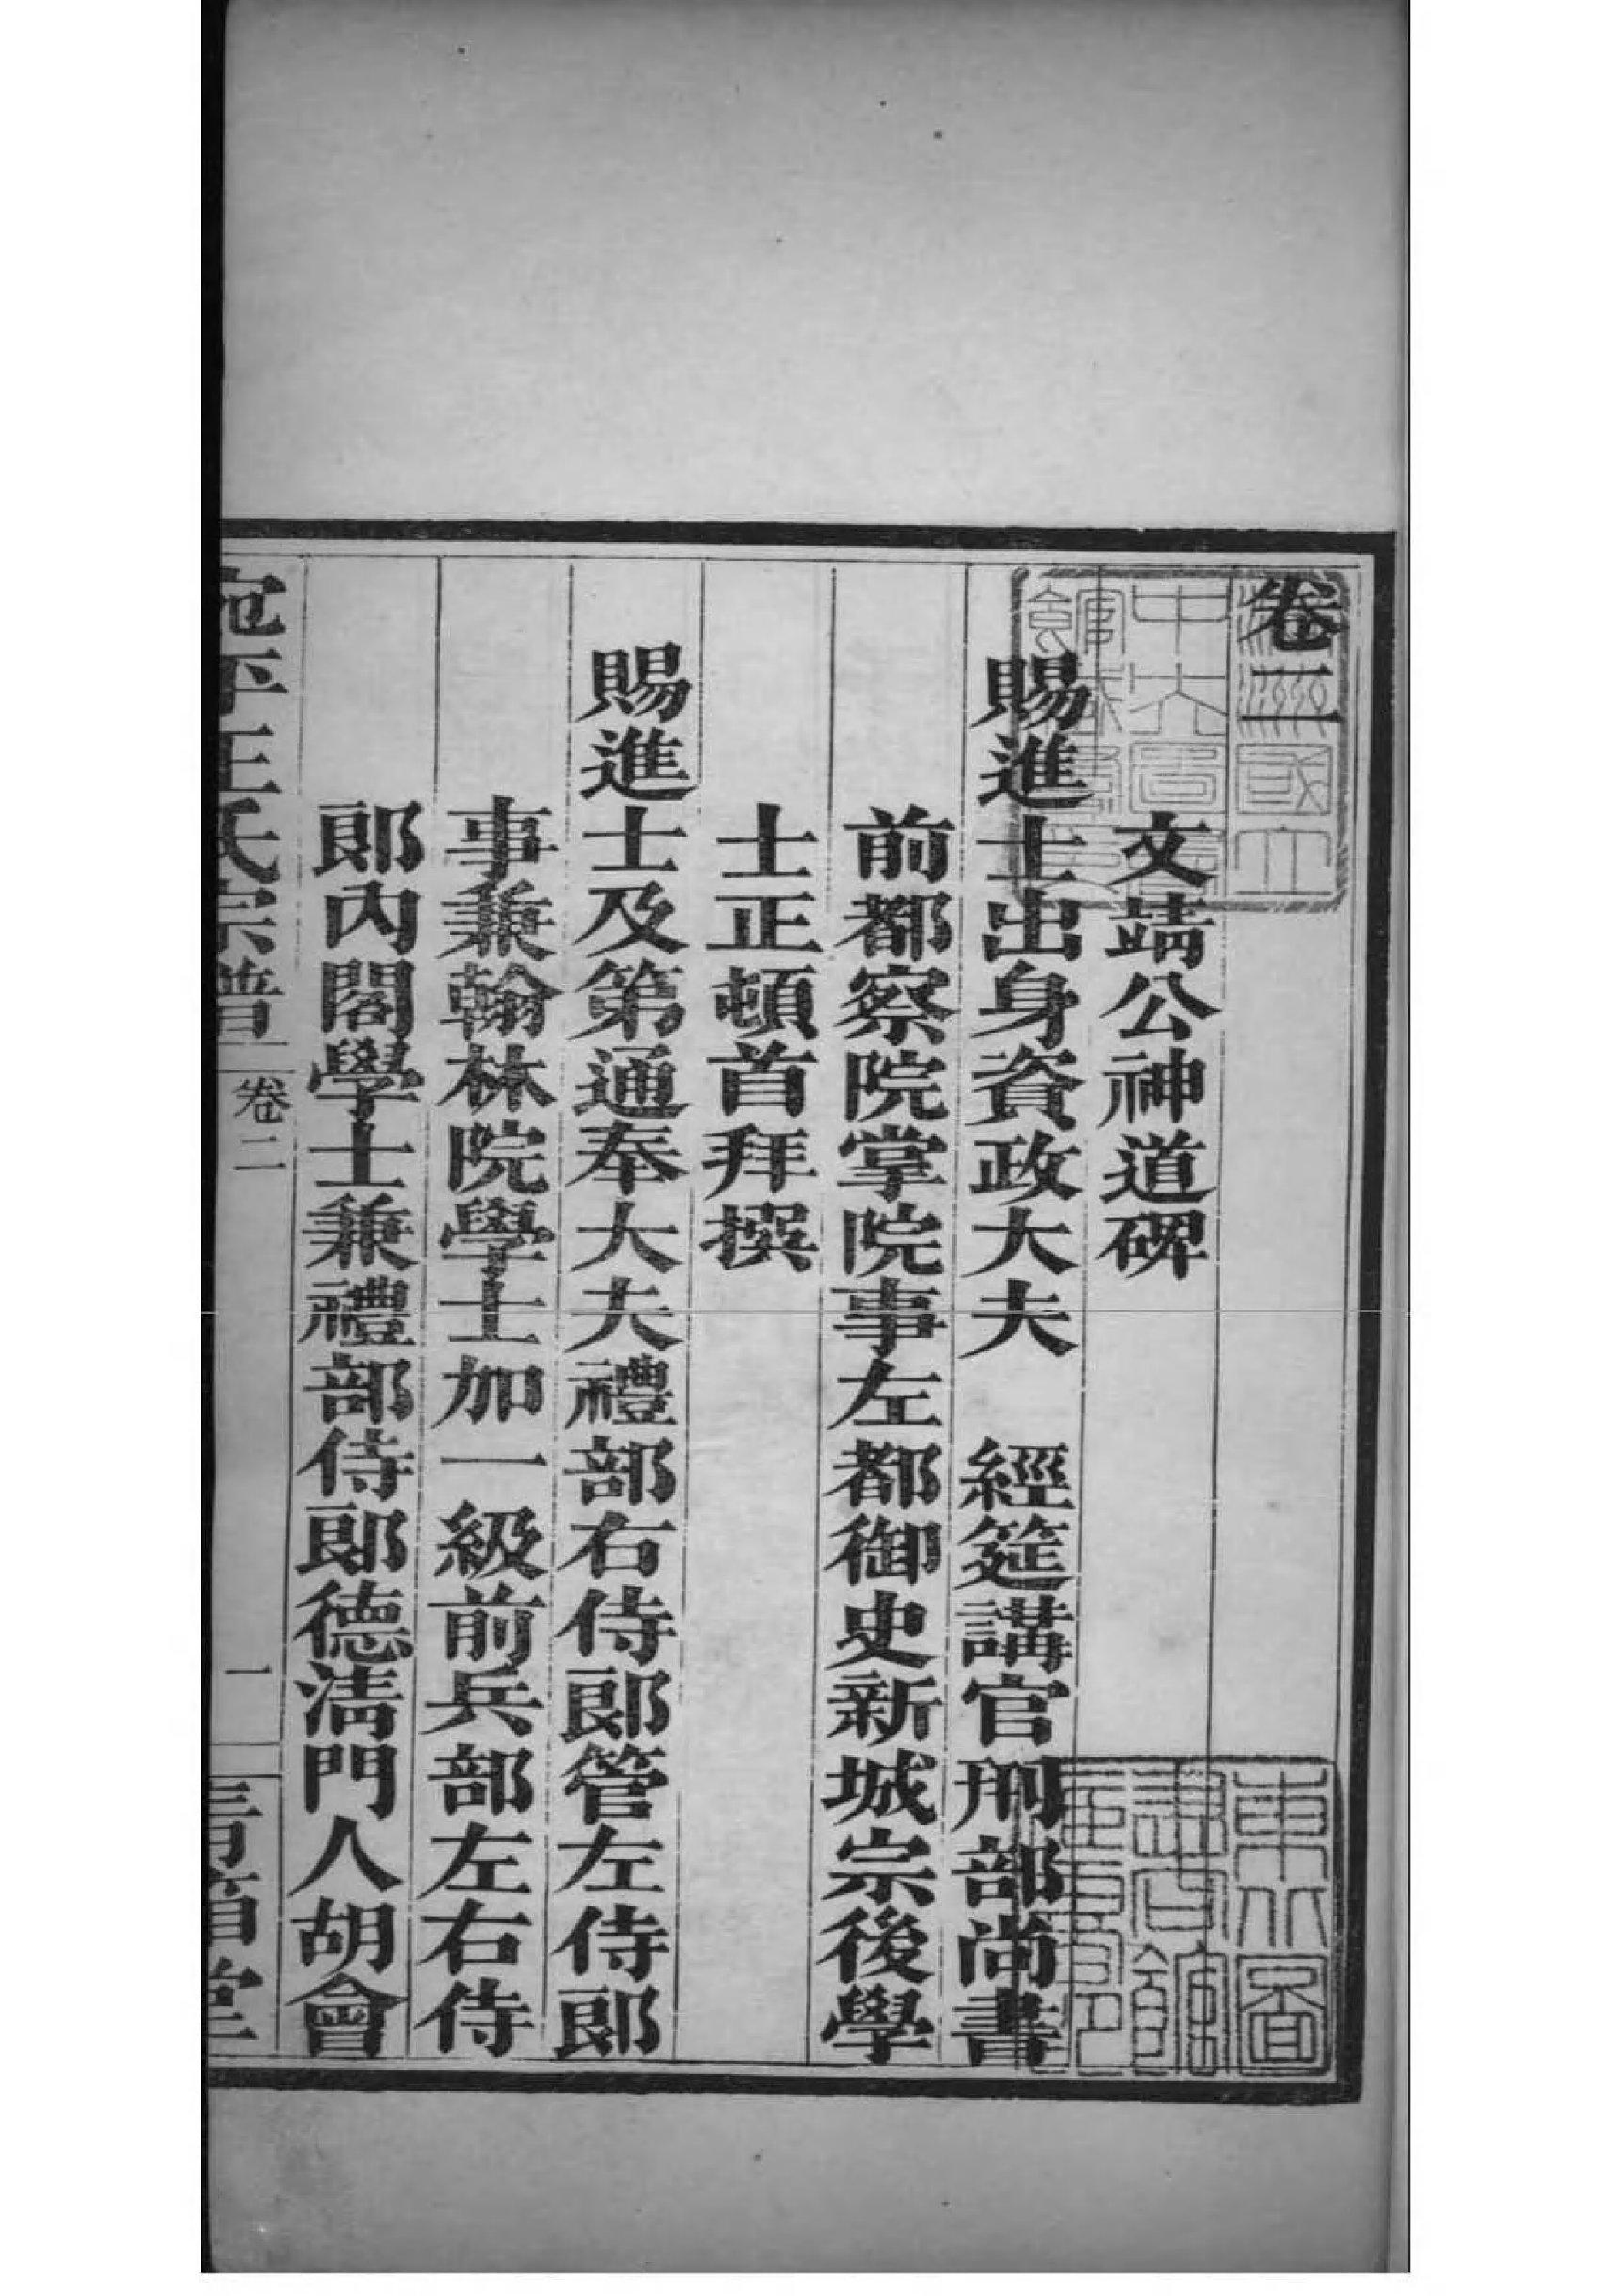 卷二
文靖公神道碑
賜進士出身資政大夫　經筵講官刑部尚書
前都察院掌院事左都御史新城宗後學
士正頓首拜撰
賜進士及第通奉大夫禮部右侍郎管左侍郎
事兼翰林院學士加一級前兵部左右侍
郎內閣學士兼禮部侍郎德淸門人胡會
宛平王氏宗譜
卷二
一
青箱堂